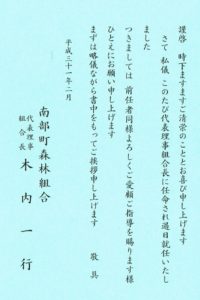 謹啓　時下ますますご清栄のこととお喜び申し上げます
さて　私儀　このたび代表理事組合長に任命され過日就任いたし
ました
つきましては　前任者同様よろしくご愛顧ご指導を賜ります様
ひとえにお願い申し上げます
まずは略儀ながら書中をもってご挨拶申し上げます
敬具
平成三十一年二月
南部町森林組合
代表理事
組合長
木内一行